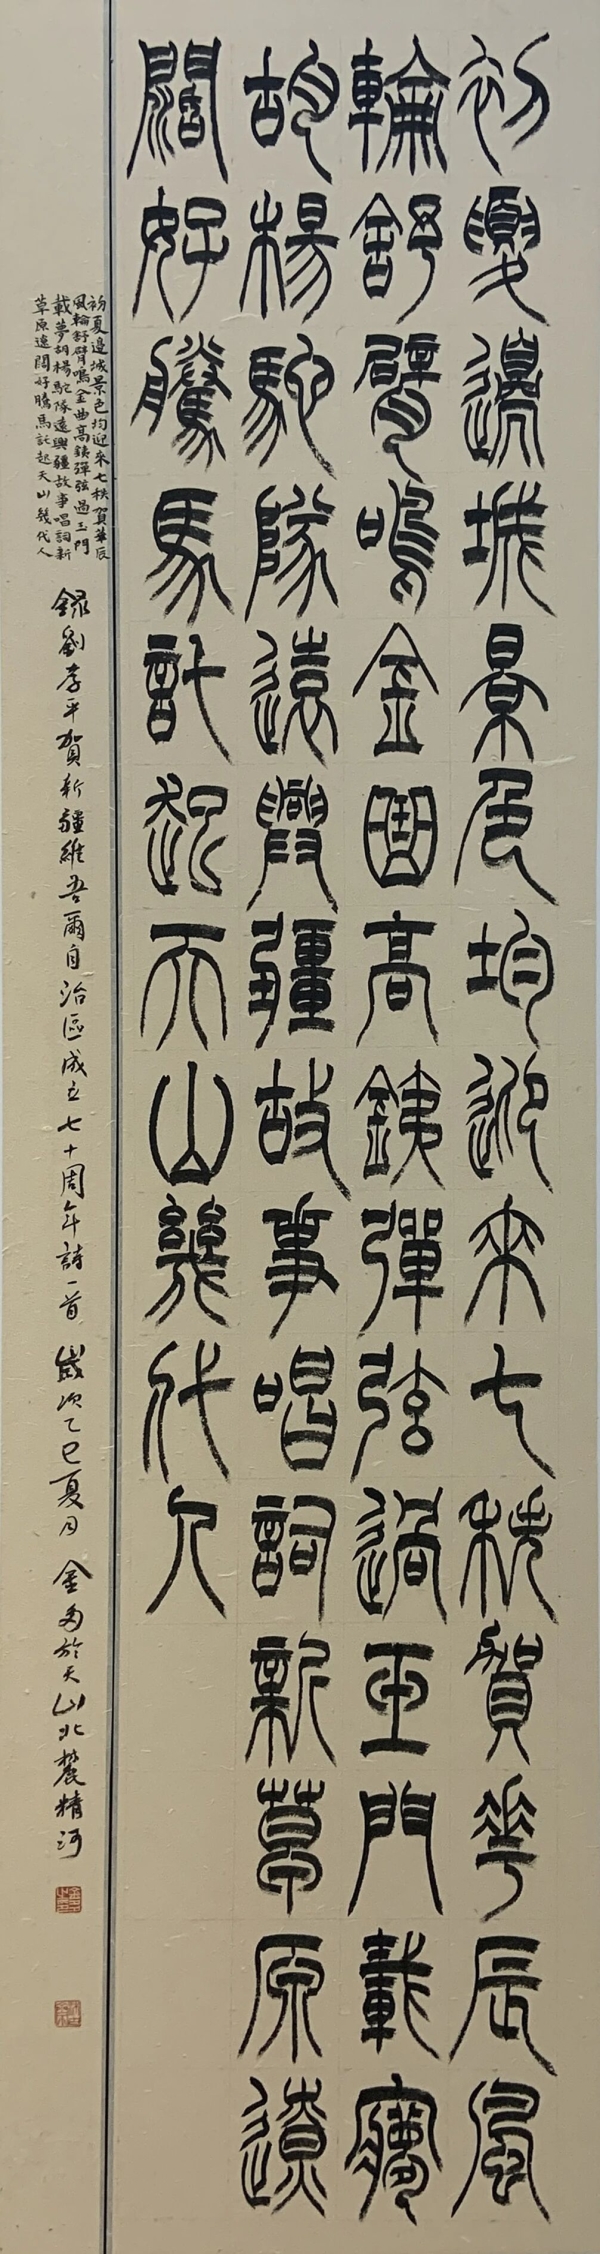 初夏邊城景色均迎來七秩賀華辰風
輪舒臂鳴金曲高銕彈弦過玉門載夢
胡楊駝隊遠興疆故事唱詞新草原遠
闊好騰馬託起天山幾代人
初夏邊城景色均迎來七秩賀華辰
風輪舒臂鳴金曲高銕彈弦過玉門
載夢胡楊駝隊遠興疆故事唱詞新
草原遠闊好騰馬託起天山幾代人
錄劉孝平賀新疆維吾爾自治區成立七十周年詩一首 歲次乙巳夏月 金 於天山北麓精河